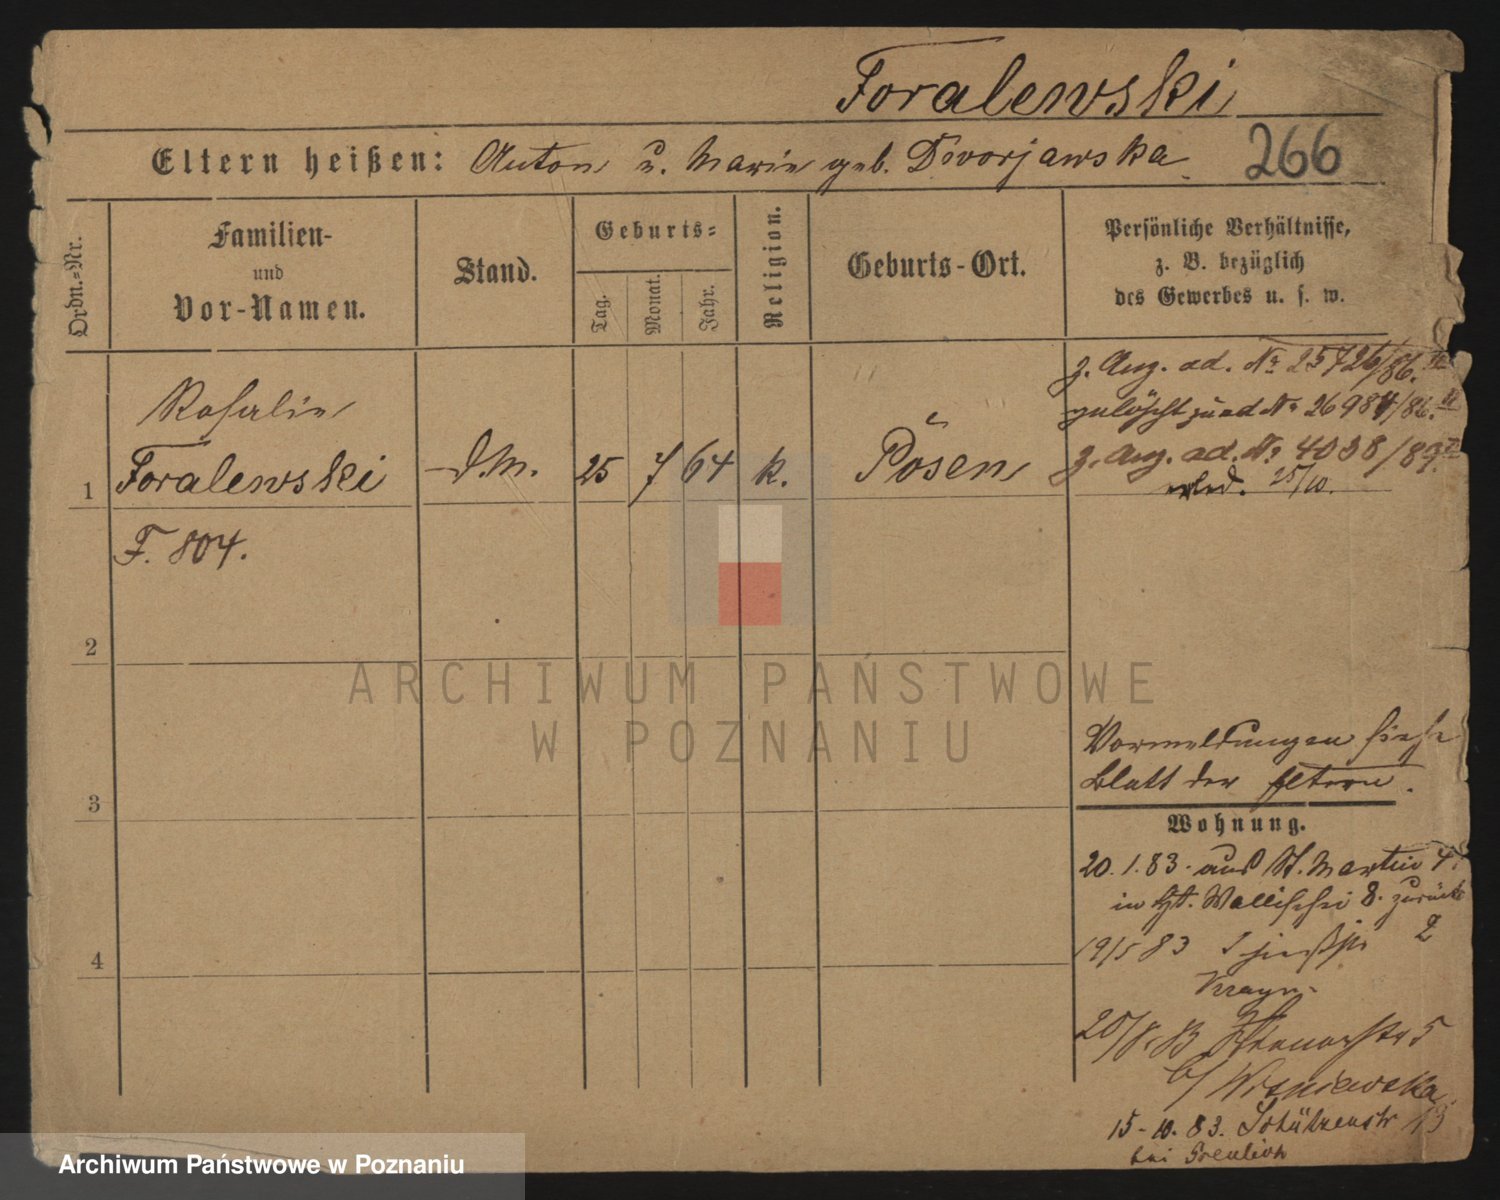 Foralewski
Eltern heißen: Anton u. Marie geb. Dworjawska
266
Ordn.=Nr.
Familien-
und
Vor-Namen.
Stand.
Geburts=
Tag.
Monat.
Jahr.
Religion.
Geburts-Ort.
Persönliche Verhältnisse,
z. B. bezüglich
des Gewerbes u. s. w.
Rosalie
1 Foralewski d.M. 25 7 64 k. Posen
F. 804.
2
3
4
z. Ang. ad. Nr 25726/86.
gelöscht zu ad Nr 26984/86.
z. Ang. ad. Nr 4038/89.
erled. 25/10.
Vormeldungen siehe
Blatt der Eltern.
Wohnung.
20.1.83. aus St. Martin 4.
in Wallischei 8. zurück
19/5 83 2
20/8.83 5
b/ Wisniewska
15-10.83. Schützenstr 13
bei
ARCHIWUM PAŃSTWOWE
W POZNANIU
Archiwum Państwowe w Poznaniu